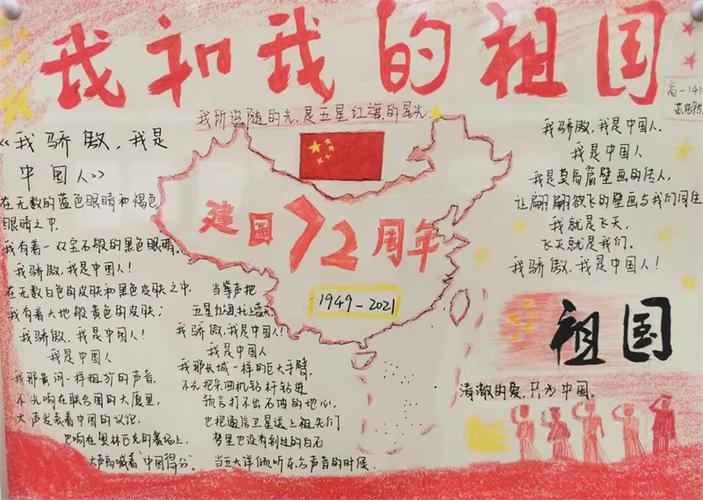 我和我的祖国
我所追随的光,是五星红海的星光
高一141
《我骄傲,我是
中国人》
在无数的蓝色眼睛和褐色
眼睛之中,
我有着一双宝石般的黑色眼睛。
我骄傲,我是中国人!
在无数白色的皮肤和黑色皮肤之中,
我有着大地般黄色的皮肤;
我骄傲,我是中国人!
我是中国人
我那黄河一样粗犷的声音,
不光响在联合国的大厦里,
大声发表着中国的议论,
也响在奥林匹克的赛场上
大声高喊着“中国得分”
当掌声把
五星红海托上蓝天
我骄傲,我是中国人!
我是中国人
我那长城一样的巨大手臂,
不光把采油机钻杆钻进
预言打不出石油的地心,
也把通信卫星送上祖先们
梦里也没有到过的白云
当五大洋倾听东方声音的时候,
建国72周年
1949-2021
我骄傲,我是中国人。
我是中国人
我是莫高窟壁画的传人,
让翩翩欲飞的壁画与我们同住
我就是飞天,
飞天就是我们。
我骄傲,我是中国人!
祖国
清澈的爱,只为中国。